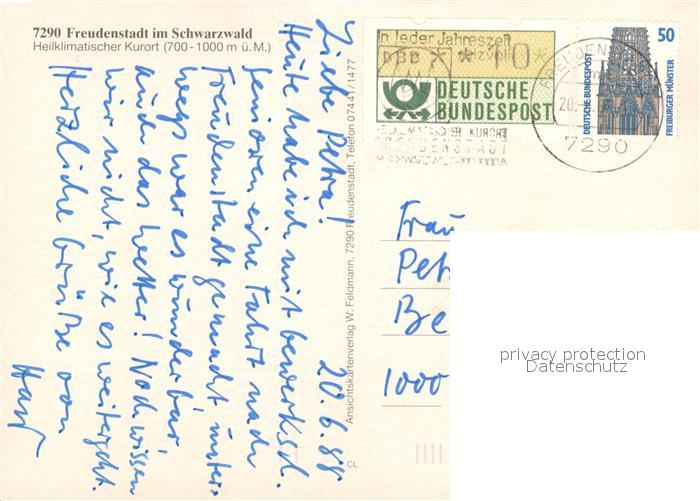 7290 Freudenstadt im Schwarzwald
Heilklimatischer Kurort (700-1000 m ü. M.)
20.6.88
Liebe Petra!
Heute habe ich mit
Senioren eine Fahrt nach
Freudenstadt gemacht. Unter-
wegs war es wunderbar,
auch das Wetter! Noch wissen
wir nicht, wie es weitergeht.
Herzliche Grüße von
Ansichtskartenverlag W. Feldmann, 7290 Freudenstadt, Telefon 07441/1477
CL
In jeder Jahreszeit
DEUTSCHE
BUNDESPOST
HEILKLIMATISCHER KURORT
FREUDENSTADT
50
DEUTSCHE BUNDESPOST
FREIBURGER MÜNSTER
7290
Frau
Pet
Be
1000
privacy protection
Datenschutz